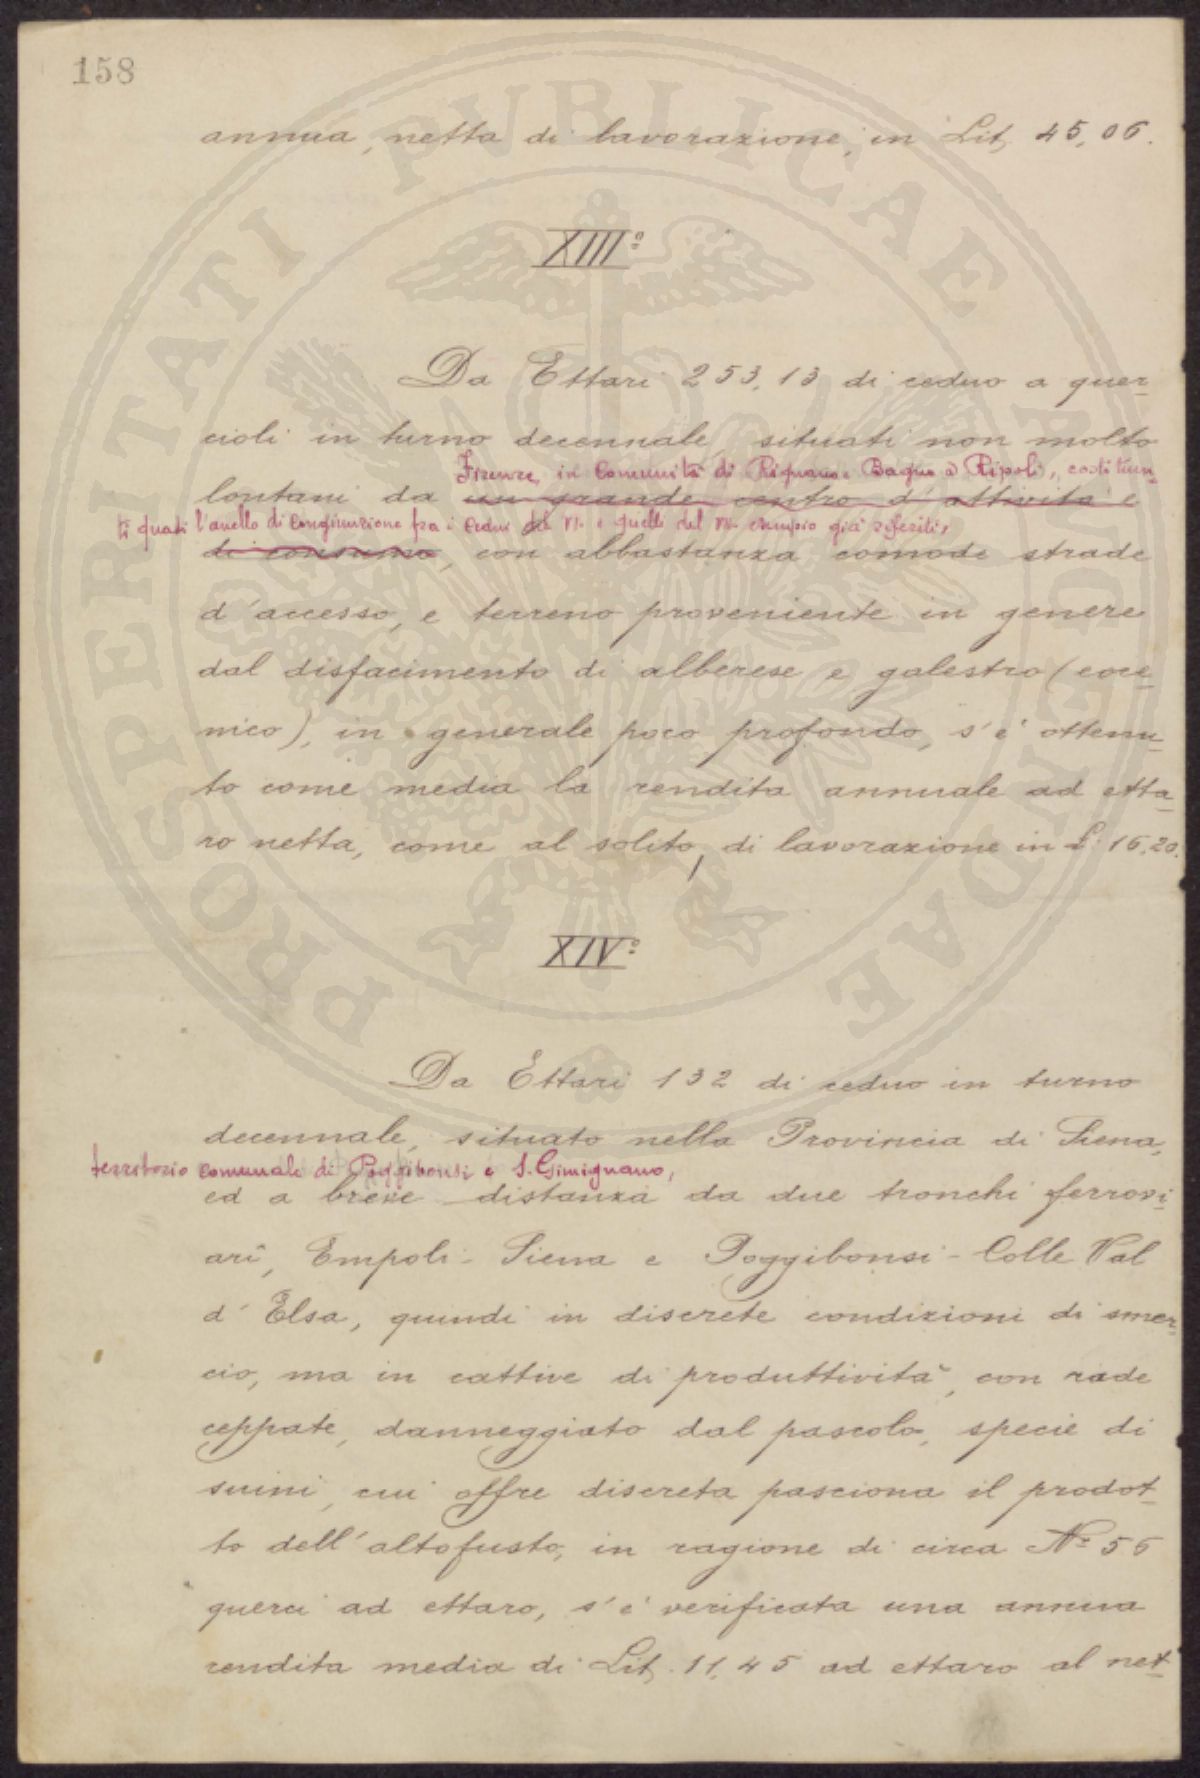 158
annua, netta di lavorazione, in Lit. 45,06.
XIII.º
Da Ettari 253,13 di ceduo a quer-
cioli in turno decennale, situati non molto
Firenze, in Comunità di Rignano e Bagno a Ripoli, costituen-
lontani da un grande centro d'attività e
ti quasi l'anello di Congiunzione fra i Cedui del VI. e quelli del esempio già riferiti,
di consumo, con abbastanza comode strade
d'accesso, e terreno proveniente in genere
dal disfacimento di alberese e galestro (eoce-
nico), in generale poco profondo, s'e' ottenu-
to come media la rendita annuale ad etta-
ro netta, come al solito, di lavorazione in L. 16,20.
XIV.º
Da Ettari 132 di ceduo in turno
decennale, situato nella Provincia di Siena,
territorio comunale di Poggibonsi e S. Gimignano,
ed a breve distanza da due tronchi ferrovi-
ari, Empoli - Siena e Poggibonsi - Colle Val
d'Elsa, quindi in discrete condizioni di smer-
cio, ma in cattive di produttività, con rade
ceppate, danneggiato dal pascolo, specie di
suini, cui offre discreta pasciona il prodot-
to dell'altofusto, in ragione di circa Nº 56
querci ad ettaro, s'e' verificata una annua
rendita media di Lit. 11,45 ad ettaro al net-
PROSPERITATI PUBLICAE AUGENDAE